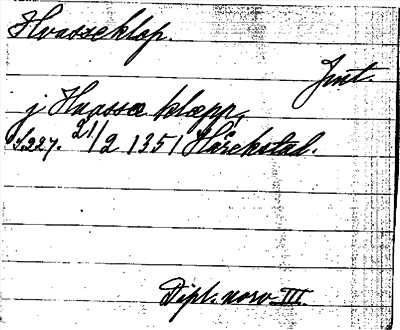 Hvasseklop.
Jmt.
j Huassa klæpp,
s. 227. 21/2 1351 Hårekstad.
Dipl. norv III.